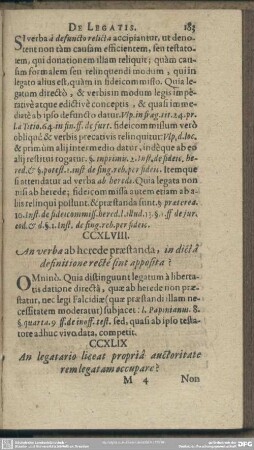 DE LEGATIS. 183
SI verba à defuncto relicta accipiantur, ut denotent
non tàm causam efficientem, seu testatorem,
qui donationem illam reliquit; quàm causam
formalem seu relinquendi modum, quí in legato
alius est, quàm in fideicommisso. Quia legatum
directò, & verbis in modum legis imperativè
atque edictivè conceptis, & quasi immediatè
ab ipso defuncto datur.
fideicommissum verò
obliquè & verbis precativis relinquitur:
& primùm alij intermedio datur, indéque ab eo
alij restitui rogatur.
Itemque
si ostendatur ad verba ab herede. Quia legata non
nisi ab herede; fideicommissa autem etiam ab aliis
relinqui possunt.
CCXLVIII.
An verba ab herede præstanda, in dictâ
definitione rectè sint apposita?
OMninò. Quia distinguunt legatum à libertatis
datione directâ, quæ ab herede non præstatur,
nec legi Falcidiæ (quæ præstandi illam necessitatem
moderatur) subjacet: l. Papinianus. 8.
§. quarta. 9 ff. de inoff. test. sed, quasi ab ipso testatore
adhuc vivo data, competit.
CCXLIX
An legatario liceat propriâ auctoritate
rem legatam occupare?
M 4 Non